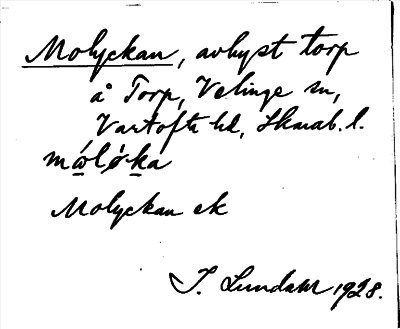 Molyckan, avhyst torp
å Torp, Velinge sn,
Vartofta hd, Skarab. l.
mώ̣lø̀ka
Molyckan ek
I. Lundahl 1928.